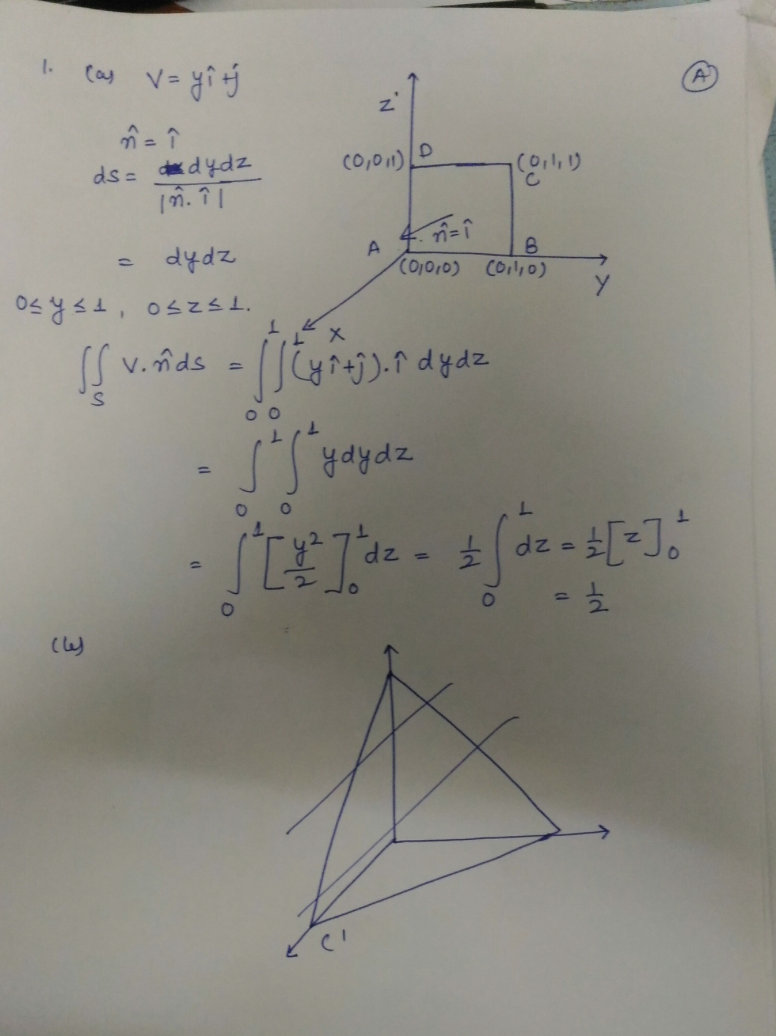 1. (a) V = yî + ĵ
(A)
n̂ = î
ds = dydz / |n̂.î|
= dydz
0 ≤ y ≤ 1, 0 ≤ z ≤ 1.
Z
(0,0,1) D
(0,1,1)
C
n̂ = î
A
B
(0,0,0) (0,1,0)
Y
X
∬_S V.n̂ds = ∫_0^1 ∫_0^1 (yî + ĵ).î dydz
= ∫_0^1 ∫_0^1 ydydz
= ∫_0^1 [y²/2]_0^1 dz = 1/2 ∫_0^1 dz = 1/2 [z]_0^1
= 1/2
(b)